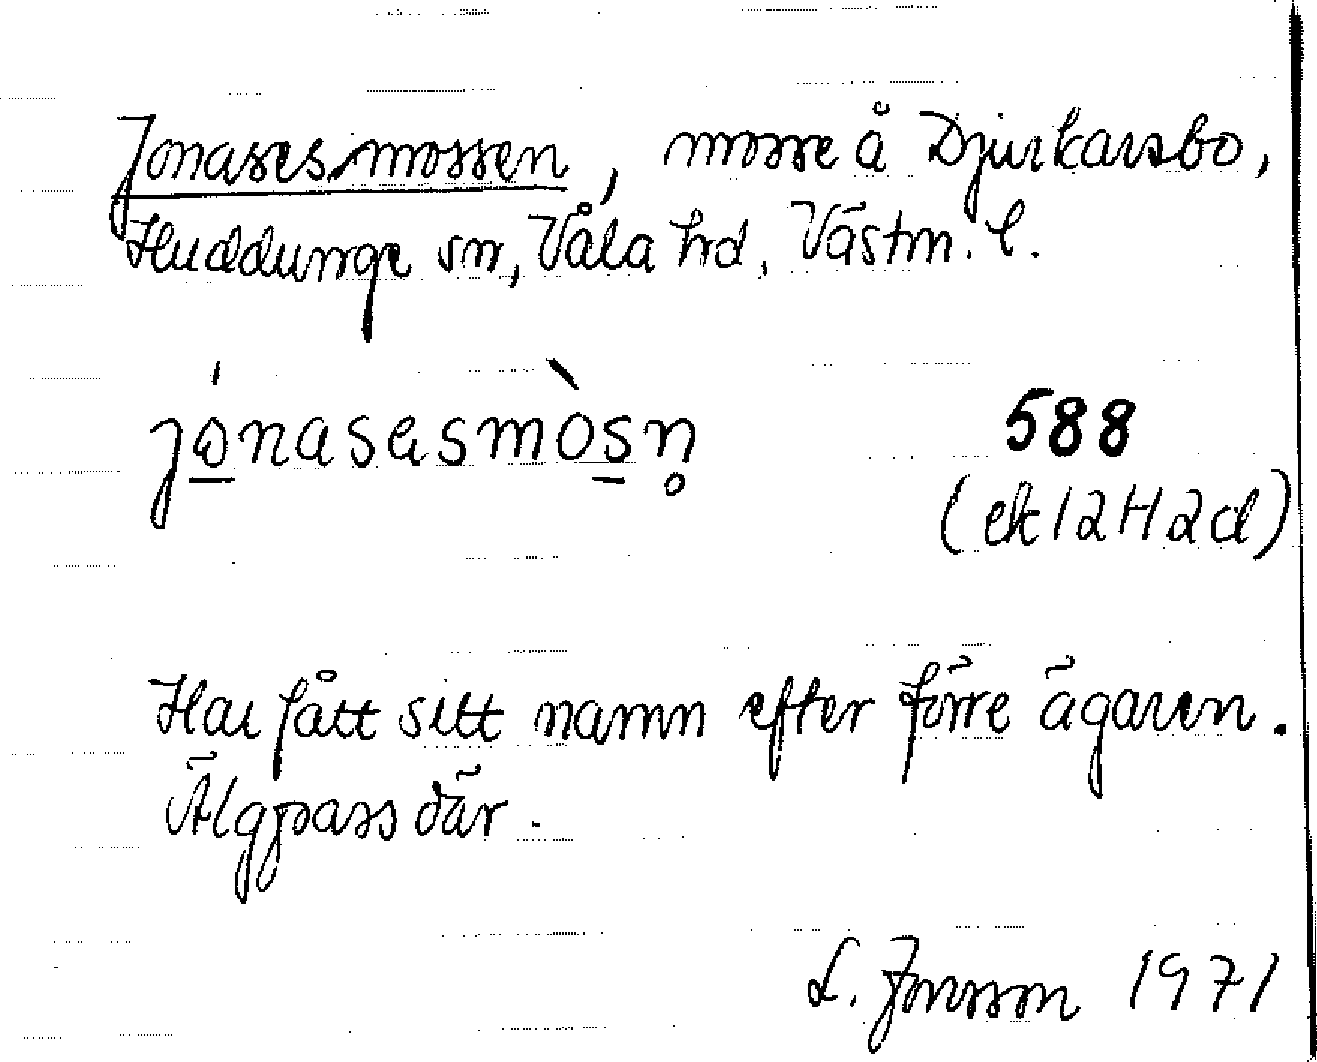 Jonasesmossen, mosse å Djurkarsbo,
Huddunge sn, Våla hd, Västm. l.
jó̱nasesmòs̱n̥
588
(ek 12 H 2 d)
Har fått sitt namn efter förre ägaren.
Älgpass där.
L. Jonsson 1971